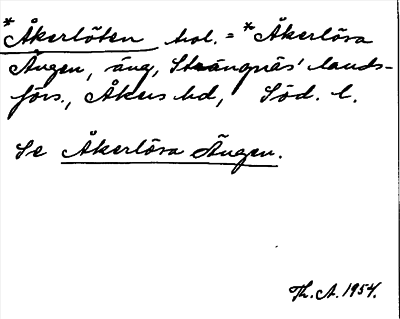 *Åkerlöten bol. = *Åkerlösa
Ängen, äng, Strängnäs' lands-
förs., Åkers hd, Söd. l.
Se Åkerlösa Ängen.
Th. A. 1954.